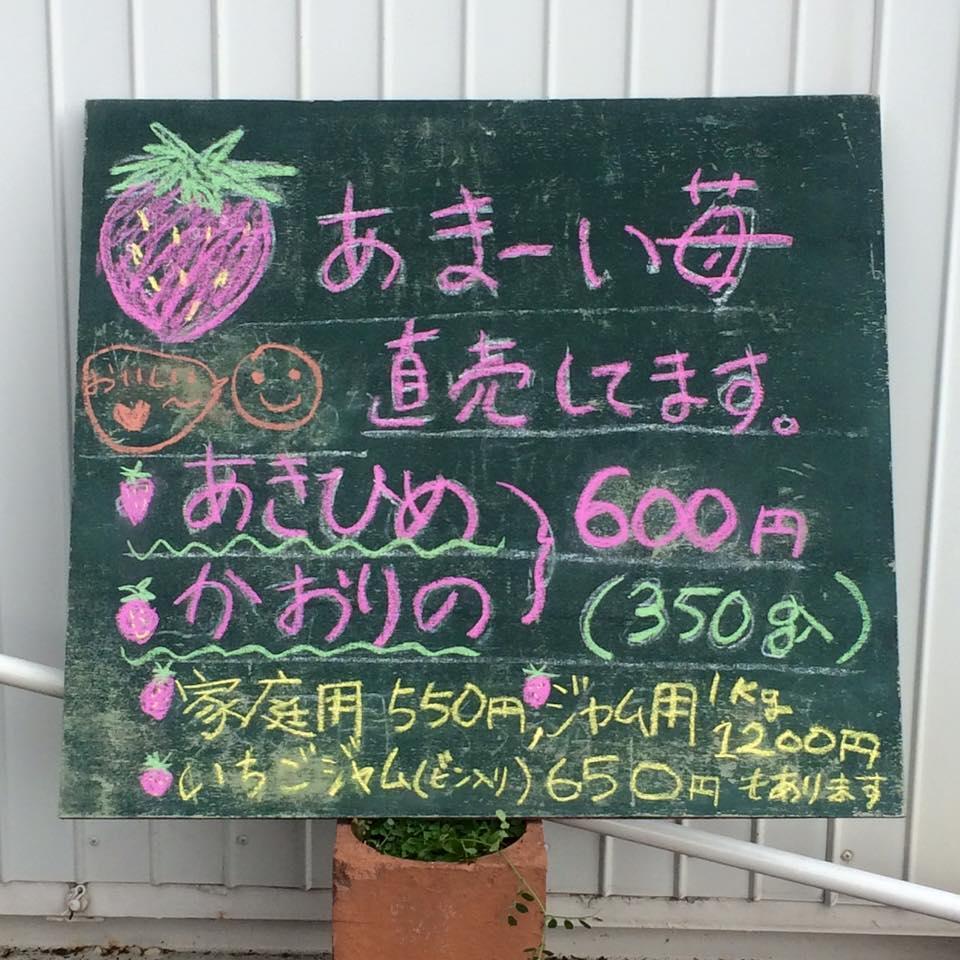 あまーい苺
直売してます。
おいしい〜
あきひめ
かおりの
600円
(350g入)
家庭用 550円, ジャム用 1kg 1200円
いちごジャム(ビン入り) 650円 もあります